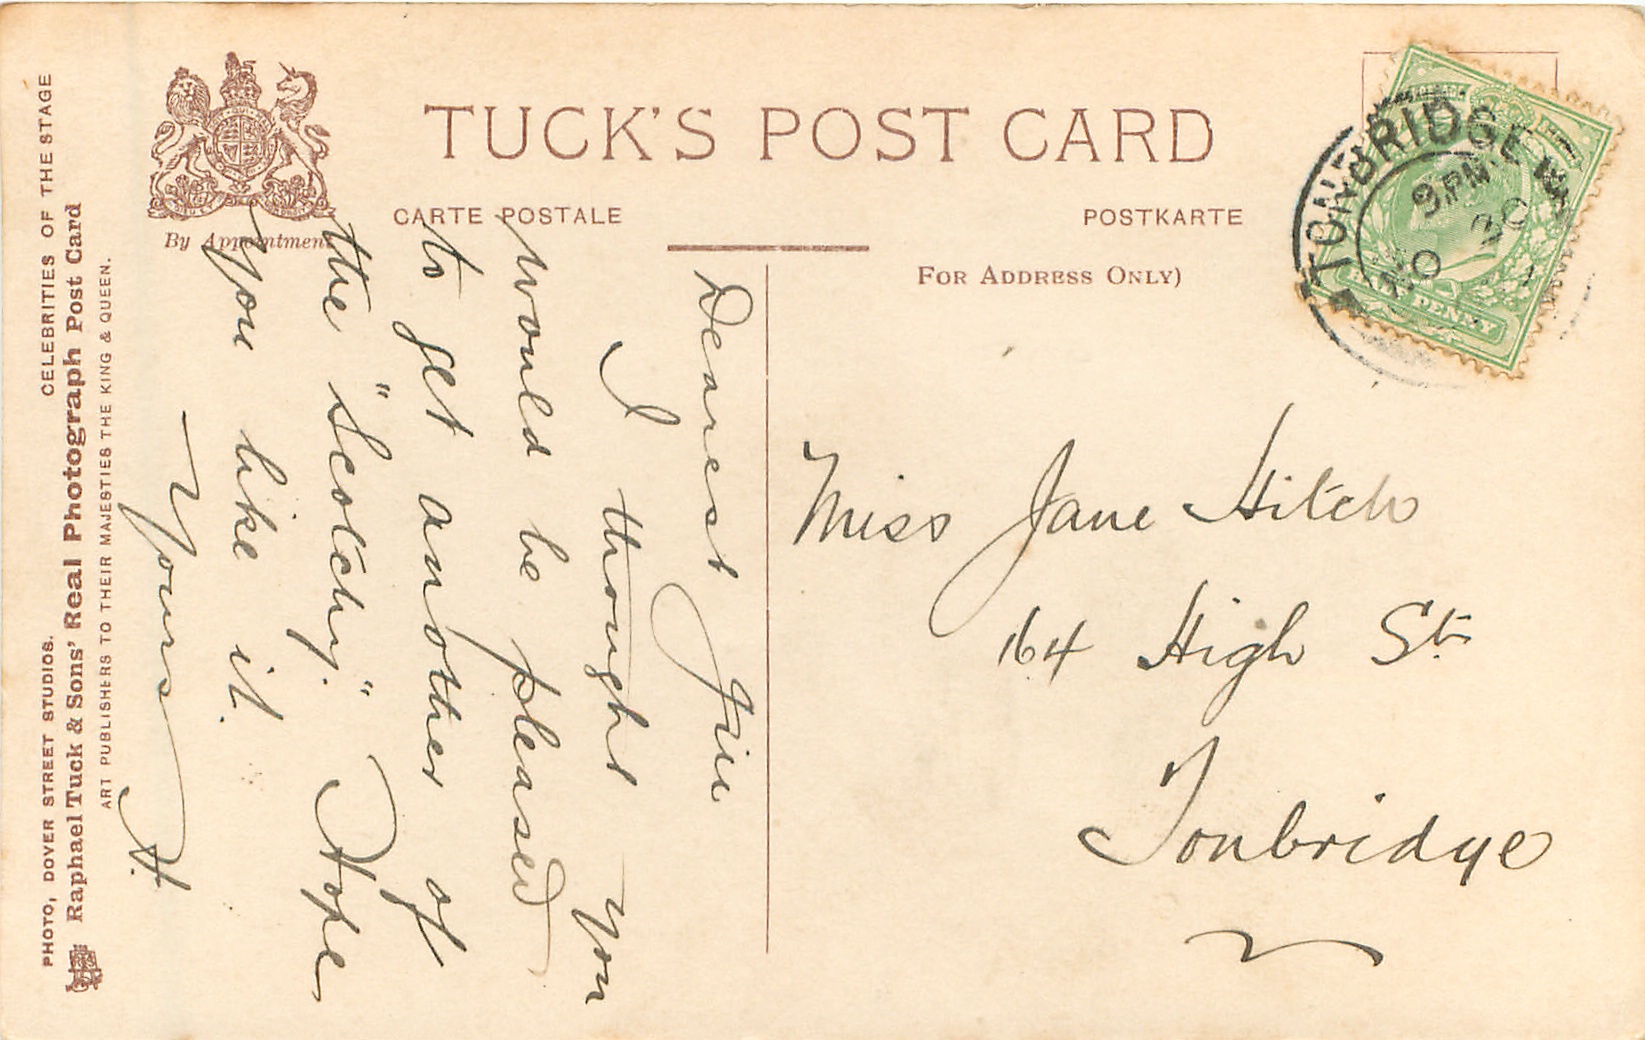 TUCK'S POST CARD
CARTE POSTALE
POSTKARTE
FOR ADDRESS ONLY)
By Appointment
CELEBRITIES OF THE STAGE
PHOTO, DOVER STREET STUDIOS.
Raphael Tuck & Sons' Real Photograph Post Card
ART PUBLISHERS TO THEIR MAJESTIES THE KING & QUEEN.
TONBRIDGE
9 PM
NO 20
HALF PENNY
Dearest
I thought you
would be pleased
to get another of
the "Scotchy." Hope
you like it.
Yours
H.
Miss Jane Hitch
164 High St.
Tonbridge